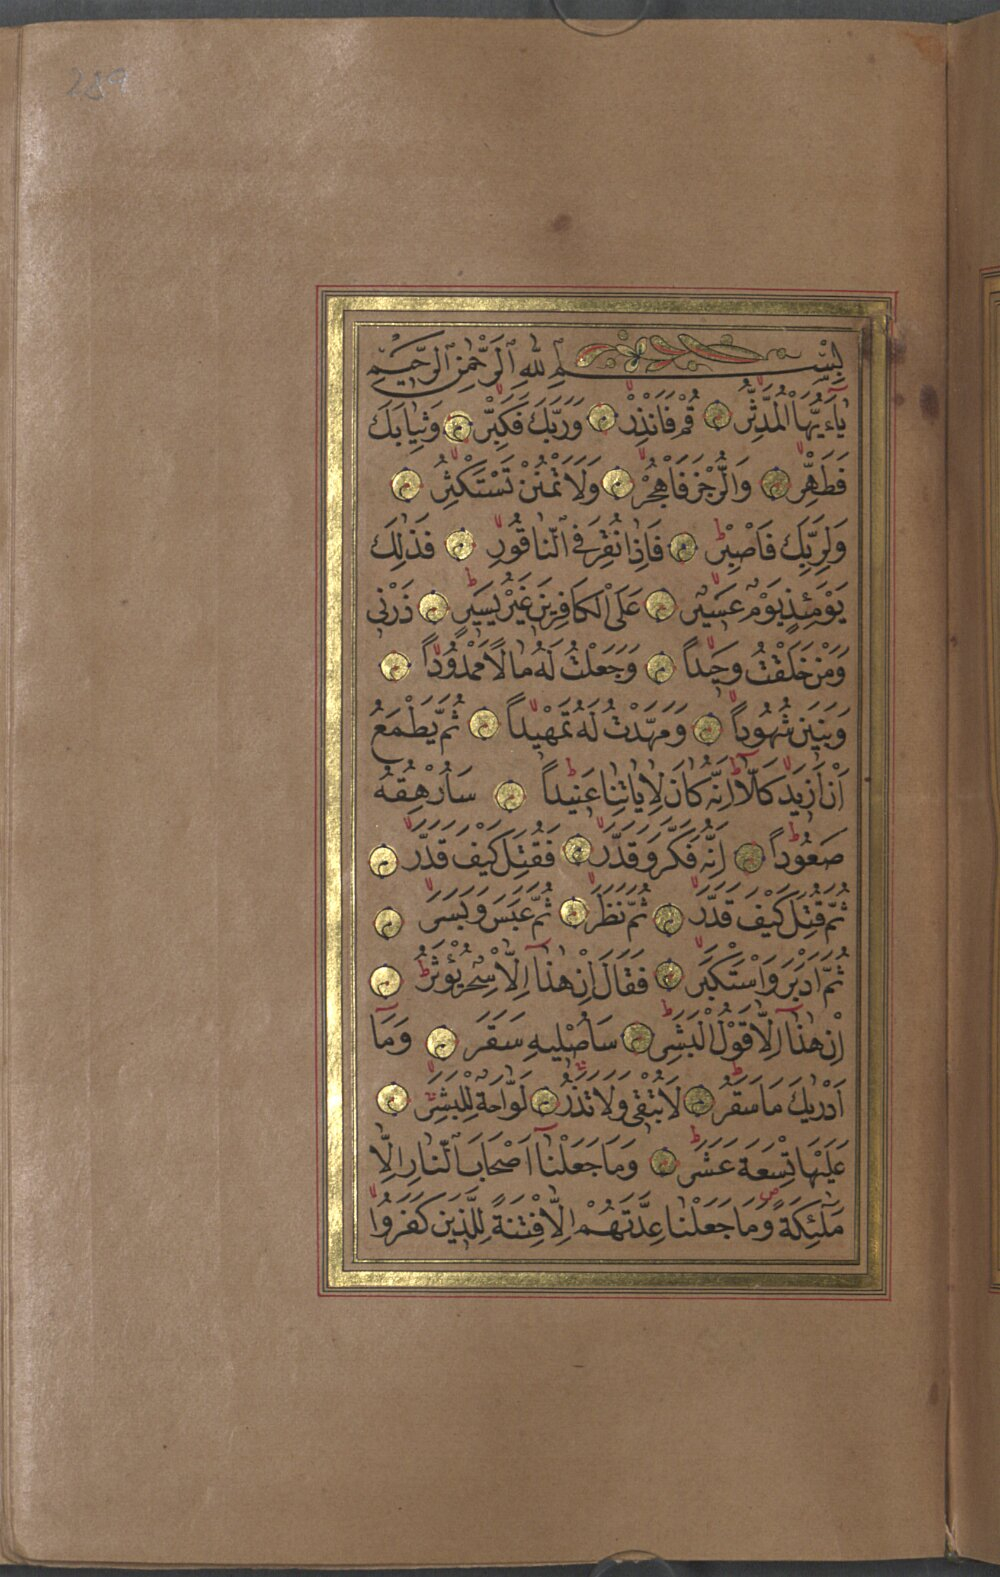 289
بِسْمِ ٱللّٰهِ ٱلرَّحْمٰنِ ٱلرَّحِيمِ
يَٓاءَيُّهَا الْمُدَّثِّرُ قُمْ فَاَنْذِرْ وَرَبَّكَ فَكَبِّرْ وَثِيَابَكَ
فَطَهِّرْ وَالرُّجْزَ فَاهْجُرْ وَلَا تَمْنُنْ تَسْتَكْثِرُ
وَلِرَبِّكَ فَاصْبِرْ فَاِذَا نُقِرَ فِى النَّاقُورِ فَذٰلِكَ
يَوْمَئِذٍ يَوْمٌ عَسِيرٌ عَلَى الْكَافِرِينَ غَيْرُ يَسِيرٍ ذَرْنِى
وَمَنْ خَلَقْتُ وَحِيداً وَجَعَلْتُ لَهُ مَالًا مَمْدُوداً
وَبَنِينَ شُهُوداً وَمَهَّدْتُ لَهُ تَمْهِيداً ثُمَّ يَطْمَعُ
اَنْ اَزِيدَ كَلَّا اِنَّهُ كَانَ لِاٰيَاتِنَا عَنِيداً سَاُرْهِقُهُ
صَعُوداً اِنَّهُ فَكَّرَ وَقَدَّرَ فَقُتِلَ كَيْفَ قَدَّرَ
ثُمَّ قُتِلَ كَيْفَ قَدَّرَ ثُمَّ نَظَرَ ثُمَّ عَبَسَ وَبَسَرَ
ثُمَّ اَدْبَرَ وَاسْتَكْبَرَ فَقَالَ اِنْ هٰذَٓا اِلَّا سِحْرٌ يُؤْثَرُ
اِنْ هٰذَٓا اِلَّا قَوْلُ الْبَشَرِ سَاُصْلِيهِ سَقَرَ وَمَٓا
اَدْرٰيكَ مَا سَقَرُ لَا تُبْقِى وَلَا تَذَرُ لَوَّاحَةٌ لِلْبَشَرِ
عَلَيْهَا تِسْعَةَ عَشَرَ وَمَا جَعَلْنَٓا اَصْحَابَ النَّارِ اِلَّا
مَلٰٓئِكَةً وَمَا جَعَلْنَا عِدَّتَهُمْ اِلَّا فِتْنَةً لِلَّذِينَ كَفَرُوا